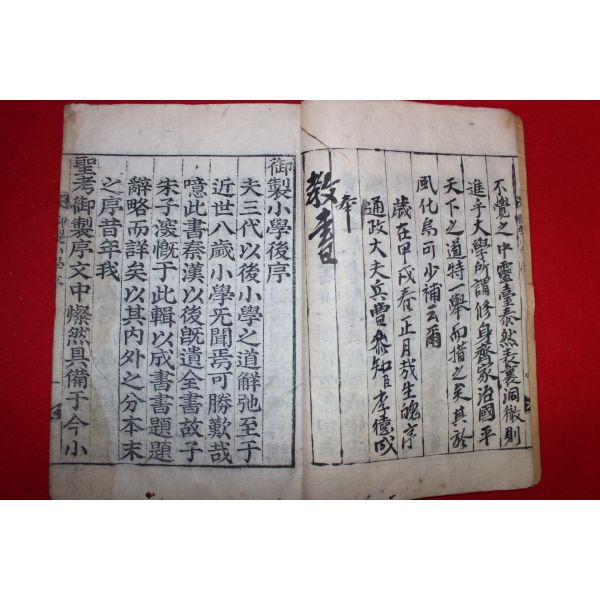 不覺之中靈臺泰然表裏洞徹則
進乎大學所謂修身齊家治國平
天下之道特一舉而措之矣其於
風化烏可少補云爾
歲在甲戌春正月哉生魄序
通政大夫兵曹參知臣李德成
奉
教書
御製小學後序
夫三代以後小學之道解弛至于
近世八歲小學旡聞焉可勝歎哉
噫此書秦漢以後旣遺全書故子
朱子深慨于此輯以成書書題題
辭略而詳矣以其內外之分本末
之序昔年我
聖考御製序文中燦然具備于今小